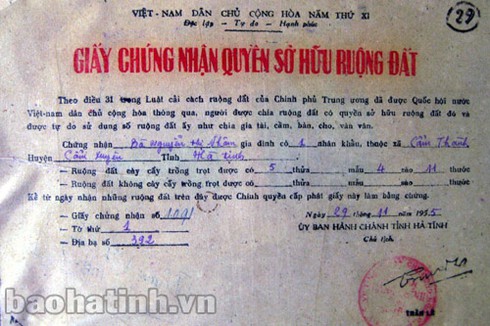 VIỆT-NAM DÂN CHỦ CỘNG HÒA NĂM THỨ XI
29
Độc lập - Tự do - Hạnh phúc
GIẤY CHỨNG NHẬN QUYỀN SỞ HỮU RUỘNG ĐẤT
Theo điều 31 trong Luật cải cách ruộng đất của Chính phủ Trung ương đã được Quốc hội nước
Việt-nam dân chủ cộng hòa thông qua, người được chia ruộng đất có quyền sở hữu ruộng đất đó và
được tự do sử dụng số ruộng đất ấy như chia gia tài, cầm, bán, cho, vân vân.
Chứng nhận Bà Nguyễn Thị gia đình có 1 nhân khẩu, thuộc xã Cẩm Thành
Huyện Cẩm Xuyên Tỉnh Hà Tĩnh
— Ruộng đất cày cấy trồng trọt được có 5 thửa mẫu 4 sào 11 thước
— Ruộng đất không cày cấy trồng trọt được có thửa mẫu sào thước
Kể từ ngày nhận những ruộng đất trên đây được Chính quyền cấp phát giấy này làm bằng chứng.
— Giấy chứng nhận số 1091
— Tờ thứ 1
— Địa bạ số 392
Ngày 29 tháng 11 năm 1955
ỦY BAN HÀNH CHÁNH TỈNH HÀ TĨNH
Chủ tịch.
baohatinh.vn